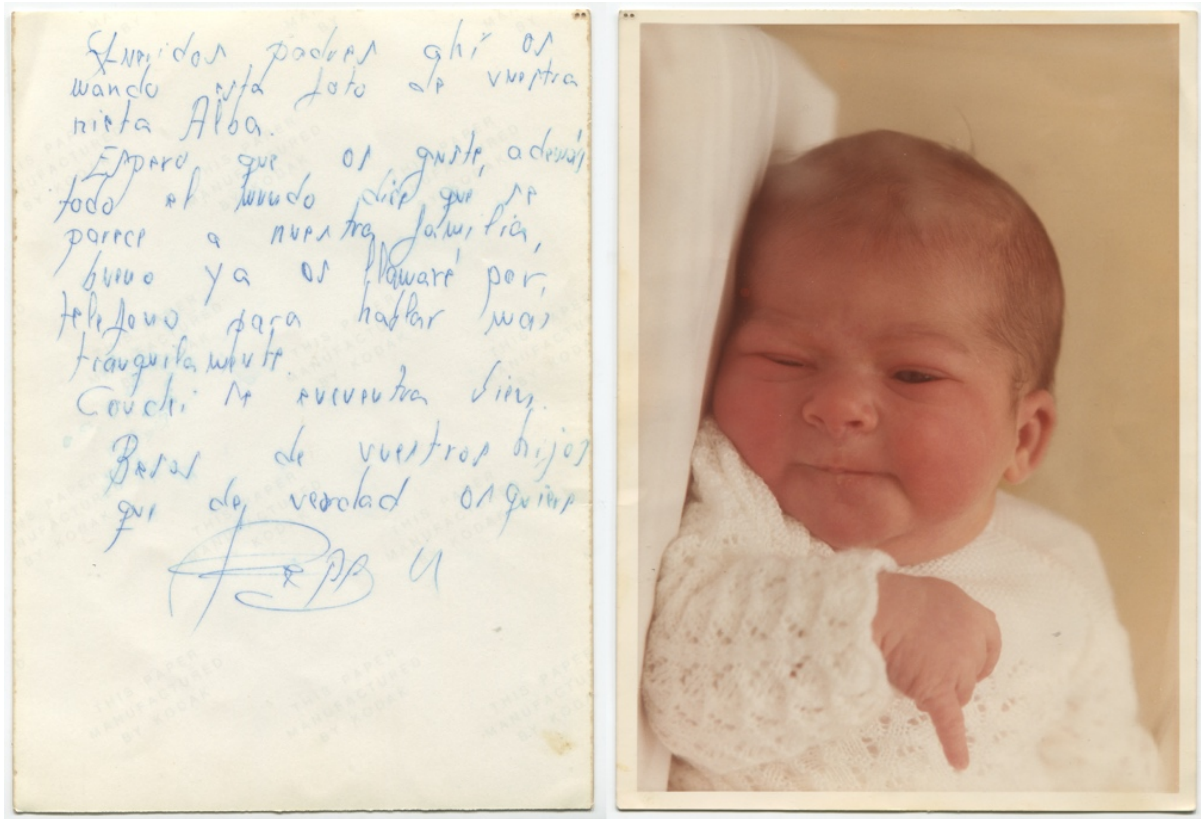 Queridos padres ahí os
mando esta foto de vuestra
nieta Alba.
Espero que os guste, además
todo el mundo dice que se
parece a nuestra familia,
bueno ya os llamaré por,
teléfono para hablar más
tranquilamente.
se encuentra bien.
Besos de vuestros hijos
que de verdad os quieren
THIS PAPER
MANUFACTURED
BY KODAK